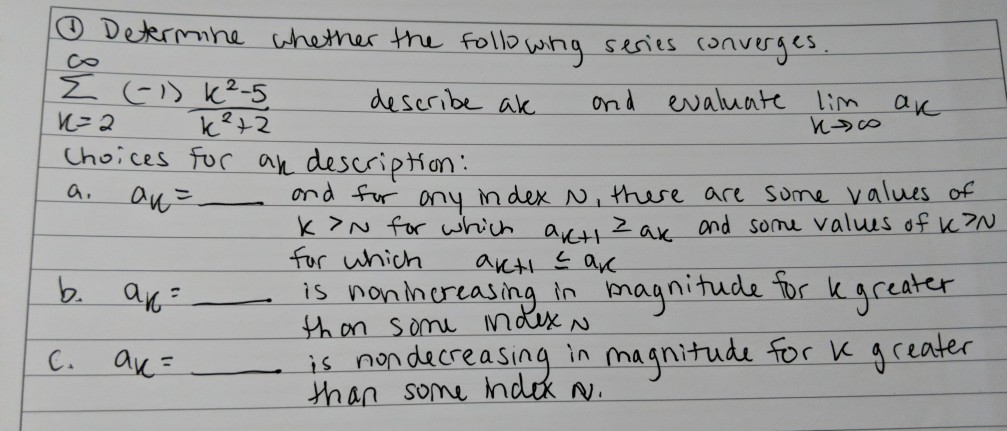 ① Determine whether the following series converges.
∞
Σ (-1) k²-5 / k²+2 describe ak and evaluate lim ak
k=2 k→∞
Choices for ak description:
a. ak = ___ and for any index N, there are some values of
k > N for which ak+1 ≥ ak and some values of k > N
for which ak+1 ≤ ak
b. ak = ___ is nonincreasing in magnitude for k greater
than some index N
c. ak = ___ is nondecreasing in magnitude for k greater
than some index N.